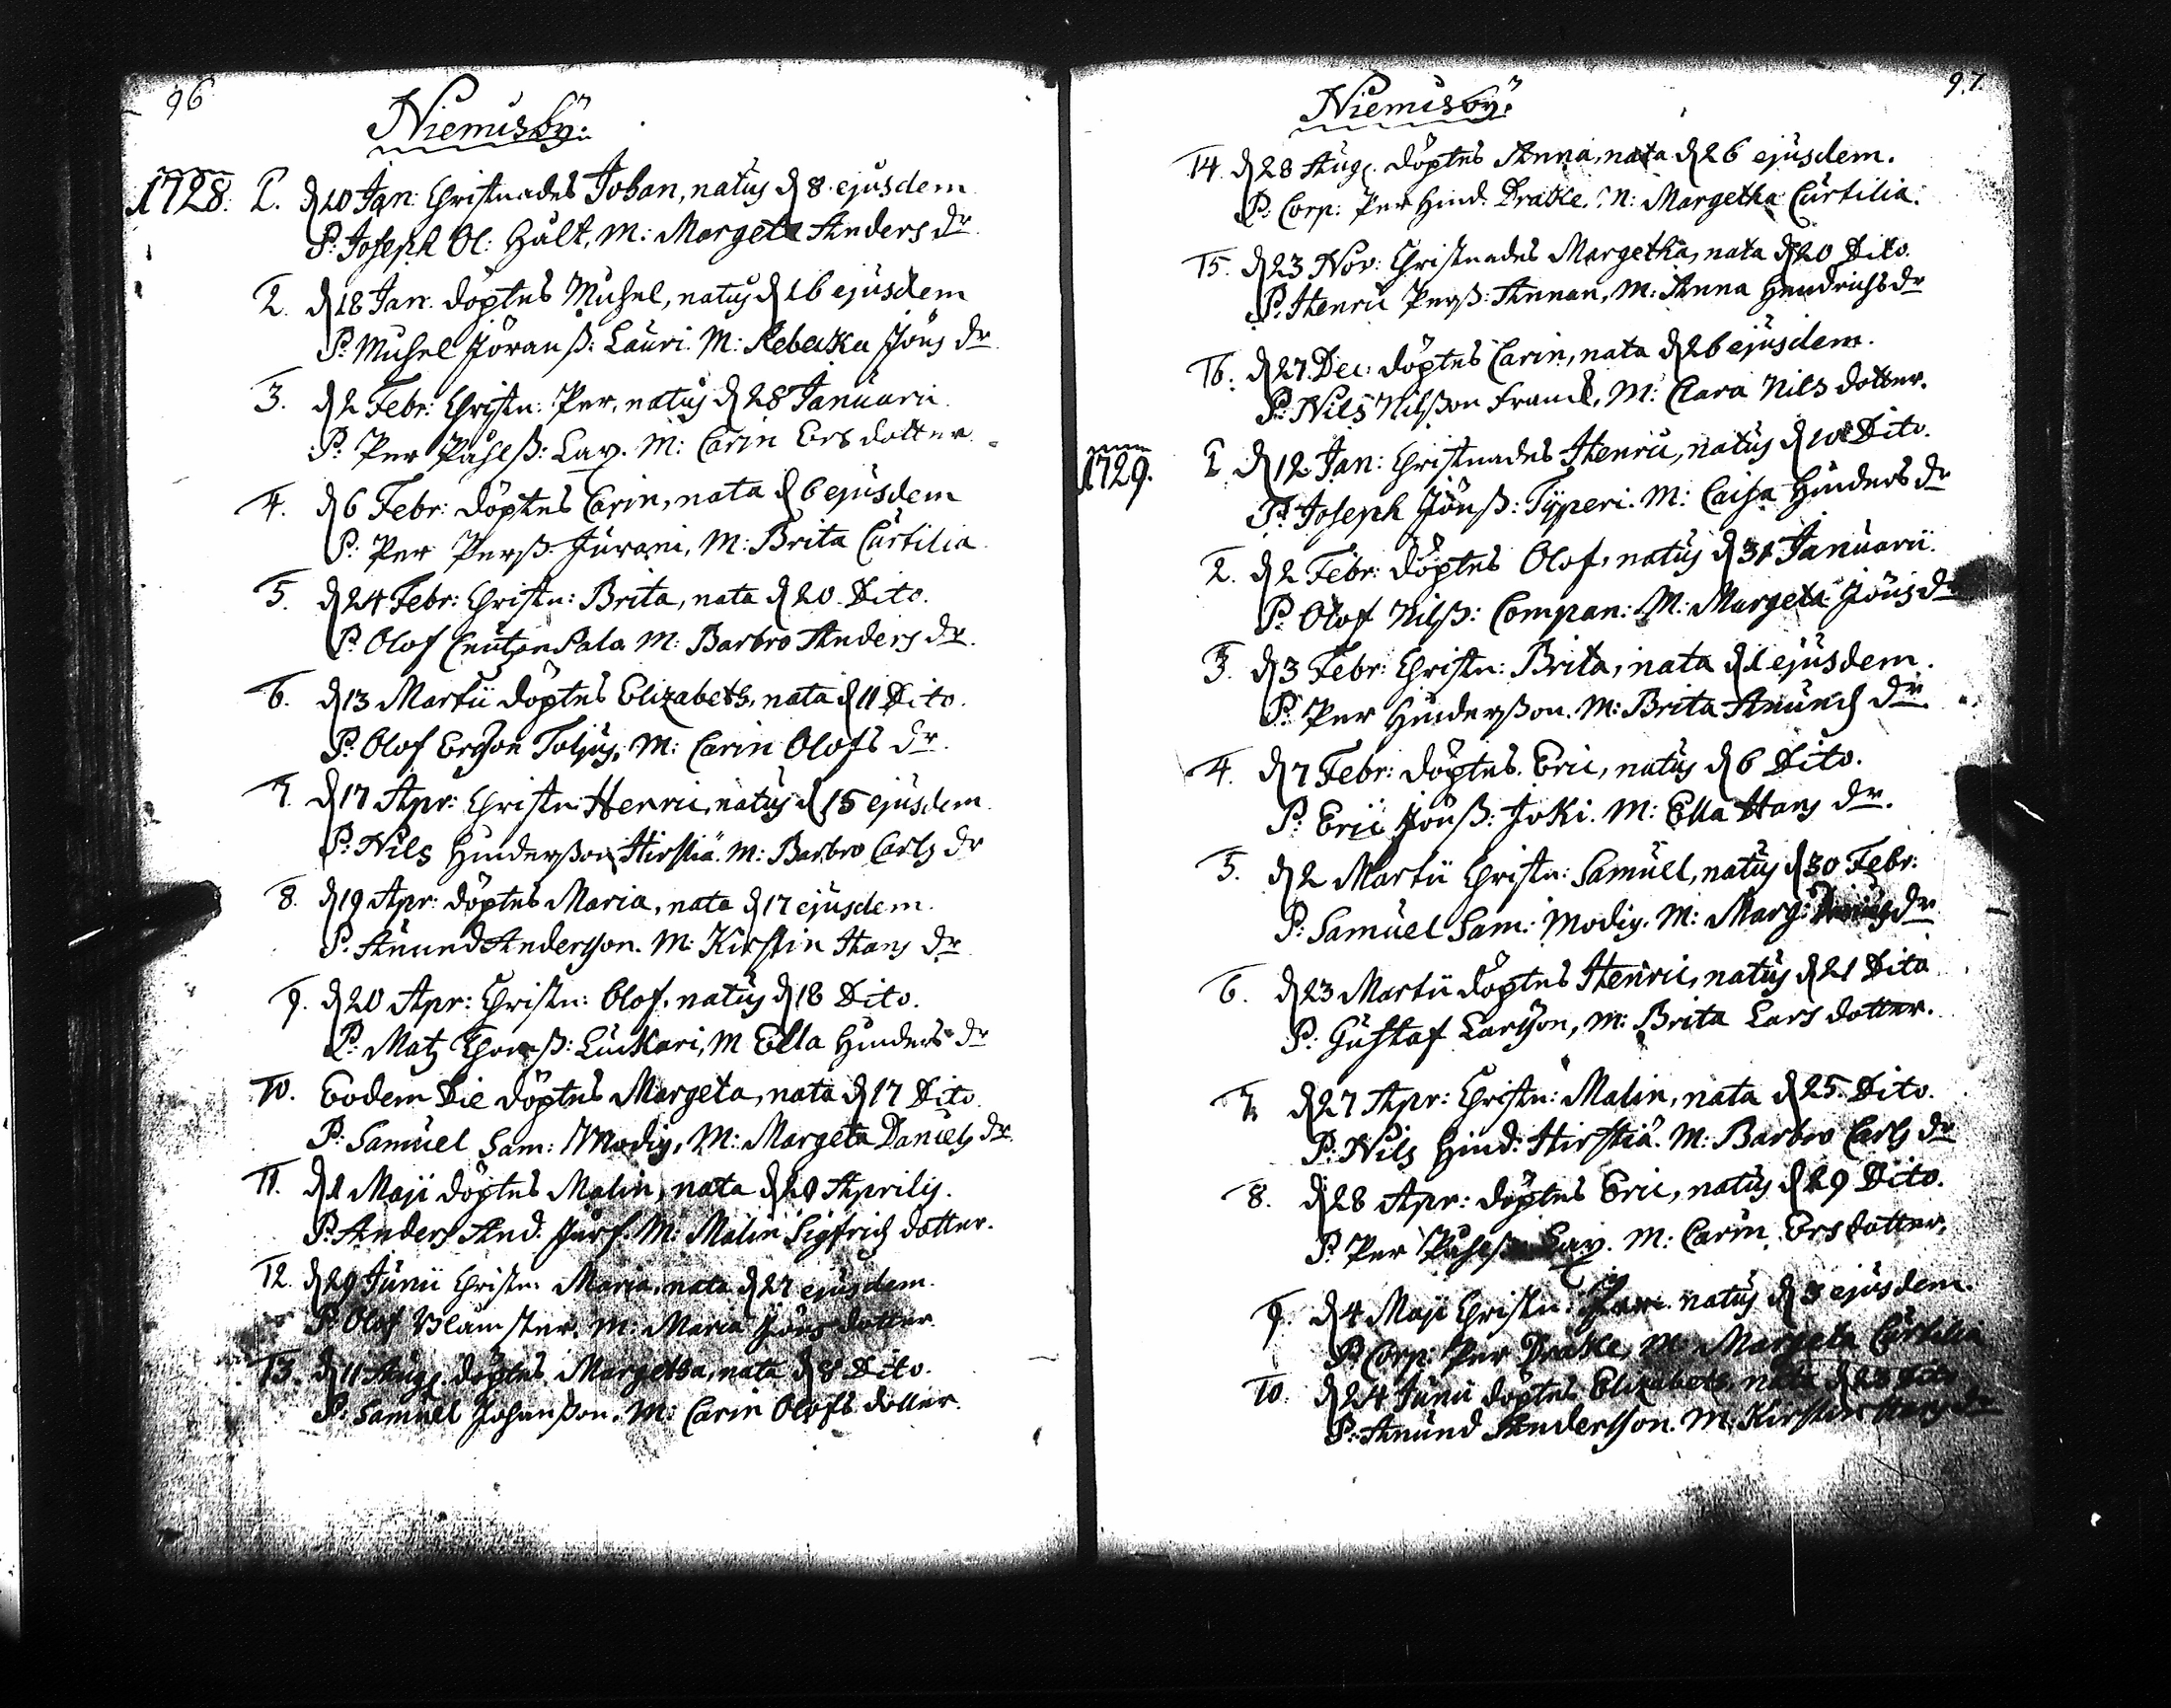 96
Niemisbÿ:
1728. 1. d 10 Jan: Christnades Johan, natus d 8 ejusdem
P: Joseph Ol: Hult, M: Margeta Anders dr.
2. d 18 Jan. döptes Michel, natus d 16 ejusdem
P: Michel Jöranß: Lauri. M: Rebecka Jöns dr.
3. d 2 Febr: Christn: Per, natus d 28 Januarii.
P: Per Påhlß: Lax. M: Carin Ers dotter.
4. d 6 Febr: döptes Carin, nata d 6 ejusdem
P: Per Perß: Jurani, M: Brita Curtilia.
5. d 24 Febr: Christn: Brita, nata d 20 Dito.
P. Olof Pala M: Barbro Anders dr.
6. d 13 Martii döptes Elizabeth, nata d 11 Dito.
P: Olof Ersson M: Carin Olofs dr.
7. d 17 Apr: Christn: Henric, natus d 15 ejusdem.
P: Nils Hinderßon Hirstiä. M: Barbro Carls dr
8. d 19 Apr: döptes Maria, nata d 17 ejusdem.
P. Anund Andersson. M: Kirstin Hans dr.
9. d 20 Apr: Christn: Olof, natus d 18 Dito.
P: Matz Luckari, M Ella Hinders dr
10. Eodem Die döptes Margeta, nata d 17 Dito
P: Samuel Sam: Modig. M: Margeta Daniels dr.
11. d 1 Maji döptes Malin, nata d Aprilis.
P. Anders And. M: Malin Sigfrids dotter.
12. d 29 Junii Christn: Maria, nata d 27 ejusdem.
P. Olof M: Maria Jöns dotter.
13. d 11 Aug: döptes Margetha, nata d 8 Dito.
P: Samuel Johanßon. M: Carin Olofs dotter.
97.
Niemisbÿ:
14. d 28 Aug: döptes Anna, nata d 26 ejusdem.
P: Corp: Per Hind: Drake. M: Margetha Curtilia.
15. d 23 Nov: Christnades Margetha, nata d 20 Dito.
P: Henric Perß: Annan, M: Anna Hendrichs dr
16. d 27 Dec: döptes Carin, nata d 26 ejusdem.
P: Nils Nilßon M: Clara Nils dotter.
1729. 1 d 12 Jan: Christnades Henric, natus d 10 Dito.
P: Joseph Jönß: Typeri. M: Caisa Hinders dr
2. d 2 Febr: döptes Olof, natus d 31 Januarii.
P: Olof Nilß: Compan: M: Margeta Jöns dr
3. d 3 Febr: Christn: Brita, nata d 1 ejusdem.
P: Per Hinderßon. M: Brita Anunds dr.
4. d 7 Febr: döptes Eric, natus d 6 Dito.
P: Eric Jönß: Joki. M: Ella Hans dr.
5. d 2 Martii Christn: Samuel, natus d 30 Febr:
P: Samuel Sam: Modig. M: Marg: dr
6. d 23 Martii döptes Henric, natus d 21 Dito
P: Gustaf Larsson, M: Brita Lars dotter.
7 d 27 Apr: Christn: Malin, nata d 25 Dito.
P: Nils Hind: Hirstiä. M: Barbro Carls dr
8. d 28 Apr: döptes Eric, natus d 29 Dito.
P. Per Påhlß: Lax. M: Carin Ers dotter.
9. d 4 Maji Christn: natus d 3 ejusdem.
P: Corp: Per Drake, M Margeta Curtilia
10. d 24 Junii döptes Elizabeth, nata d 23 Dito
P. Anund Andersson. M: Kirstin Hans dr